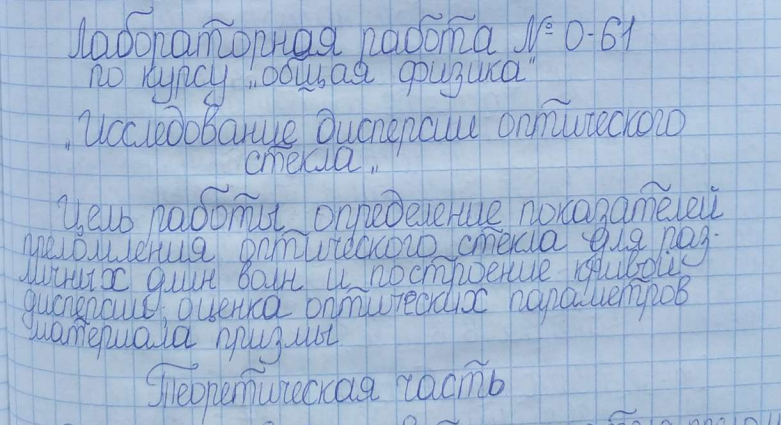 Лабораторная работа № 0-61
по курсу "общая физика"
"Исследование дисперсии оптического
стекла"
Цель работы определение показателей
преломления оптического стекла для раз-
личных длин волн и построение кривой
дисперсии, оценка оптических параметров
материала призмы
Теоретическая часть